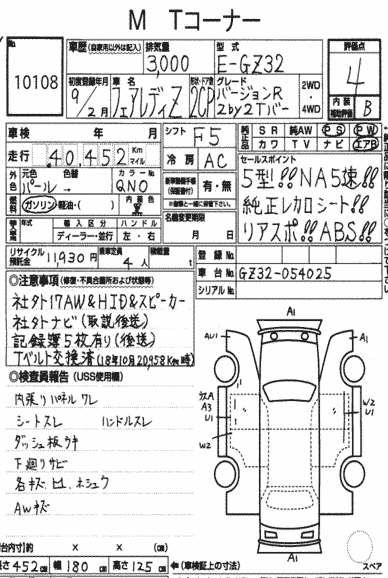 M Tコーナー
No. 10108
車歴 (自家用以外は記入) 排気量 3,000
型式 E-GZ32
評価点 4
初度登録年月 9/2月
車名 フェアレディZ
形状・ドア数 2CP
グレード バージョンR 2by2Tバー
2WD・4WD
内装補助評価 B
車検 年 月
シフト F5
純正品 SR 純AW PS PW
カワ TV ナビ エアB
走行 40,452 Km マイル
冷房 AC
セールスポイント
5型!! NA5速!!
純正レカロシート!!
リアスポ!! ABS!!
外色 元色 色替 カラーNo.
パール→ QN0
有・無
燃料 ガソリン・軽油・( ) 内装色 黒
名義変更期限 月 日
輸入区分 ハンドル
年式 ディーラー・並行 左・右
リサイクル預託金 11,930円 乗車定員 4人 積載量 t
登録No.
車台No. GZ32-054025
シリアルNo.
◎注意事項 (修復・不具合箇所および状態等)
社外17AW&HID&スピーカー
社外ナビ(取説後送)
記録簿5枚有り(後送)
Tベルト交換済(18年10月20,958Km時)
◎検査員報告 (USS使用欄)
内張りパネルワレ
シートスレ ハンドルスレ
ダッシュ板ウキ
下廻りサビ
各キズ ヒエ ホシュウ
AWキズ
A1
AU1
A1
A3
U1
W2
W2
U1
A1
スペア
荷台内寸)約 × × (cm)
長さ 452cm 幅 180cm 高さ 125cm
←(車検証上の寸法)